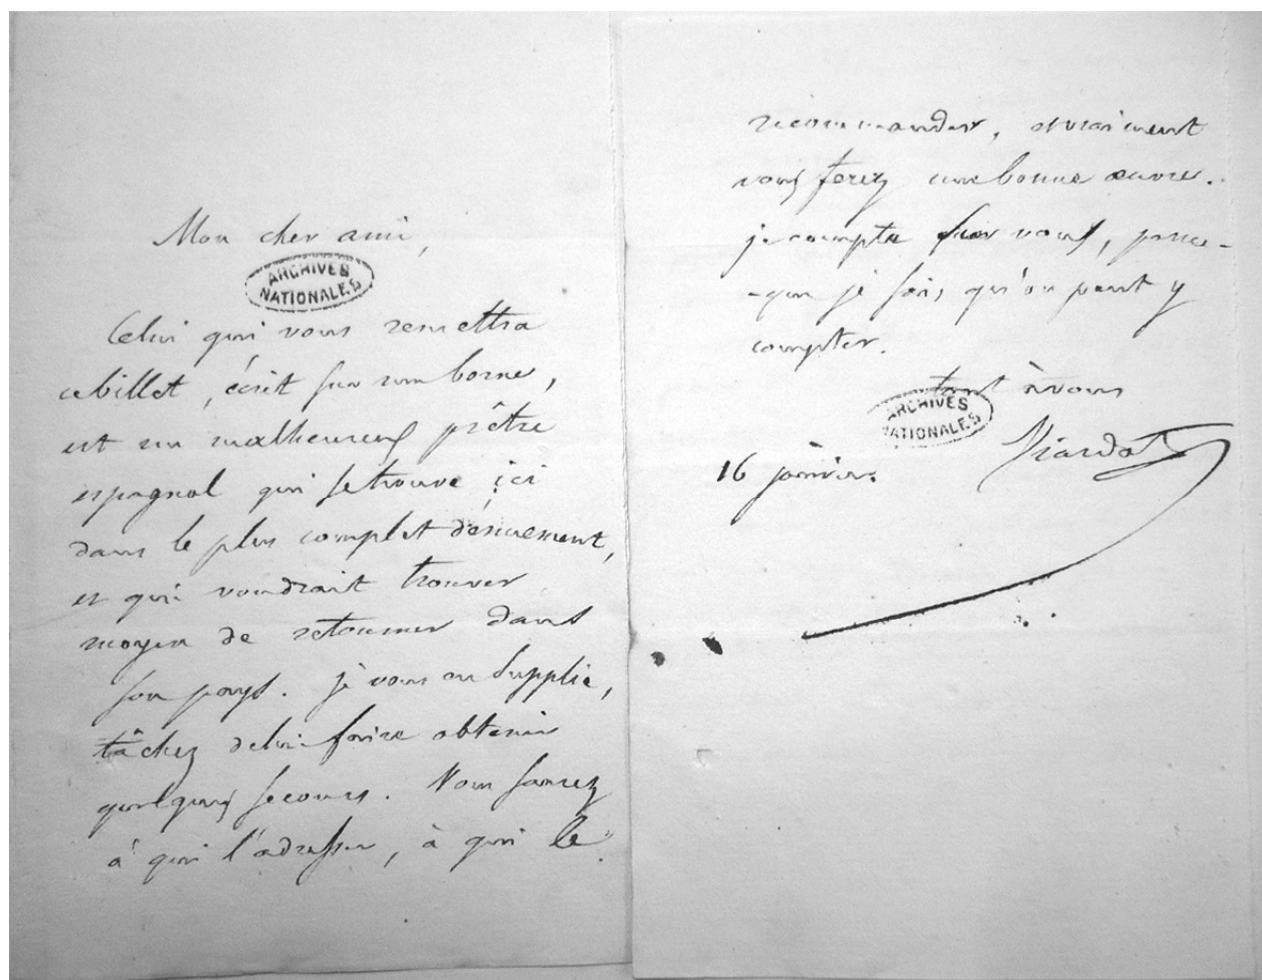 Mon cher ami,
ARCHIVES
NATIONALES
Celui qui vous remettra
ce billet, écrit sur une borne,
est un malheureux prêtre
espagnol qui se trouve ici
dans le plus complet dénuement,
et qui voudrait trouver
moyen de retourner dans
son pays. je vous en supplie,
tâchez de lui faire obtenir
quelques secours. Vous saurez
à qui l'adresser, à qui le
recommander, et vraiment
vous ferez une bonne œuvre.
je compte sur vous, parce-
-que je sais qu'on peut y
compter.
tout à vous
ARCHIVES
NATIONALES
Viardot
16 janvier.